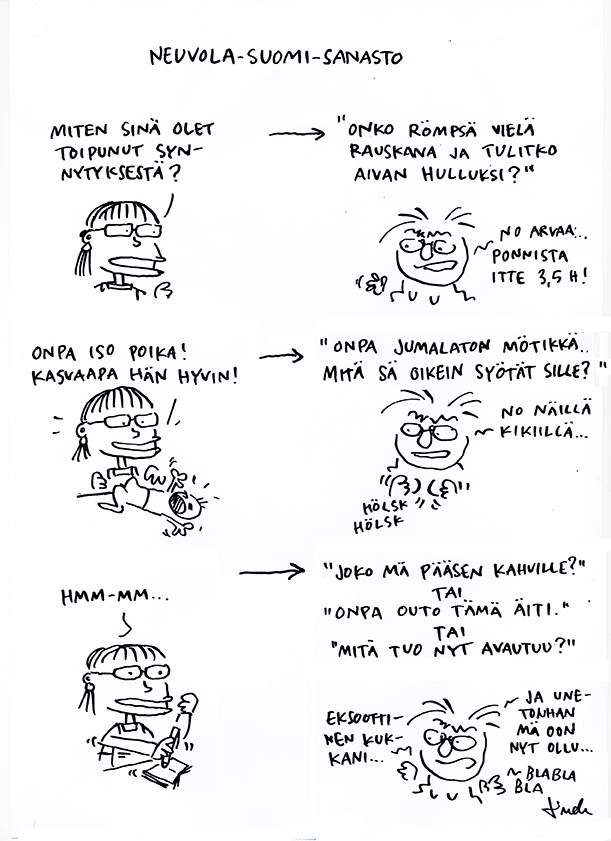 NEUVOLA-SUOMI-SANASTO
MITEN SINÄ OLET
TOIPUNUT SYN-
NYTYKSESTÄ?
"ONKO RÖMPSÄ VIELÄ
RAUSKANA JA TULITKO
AIVAN HULLUKSI?"
NO ARVAA...
PONNISTA
ITTE 3,5 H!
ONPA ISO POIKA!
KASVAAPA HÄN HYVIN!
"ONPA JUMALATON MÖTIKKÄ..
MITÄ SÄ OIKEIN SYÖTÄT SILLE?"
NO NÄILLÄ
KIKIILLÄ...
HÖLSK
HÖLSK
HMM-MM...
"JOKO MÄ PÄÄSEN KAHVILLE?"
TAI
"ONPA OUTO TÄMÄ ÄITI."
TAI
"MITÄ TUO NYT AVAUTUU?"
EKSOOTTI-
NEN KUK-
KANI...
JA UNE-
TONHAN
MÄ OON
NYT OLLU...
BLABLA
BLA